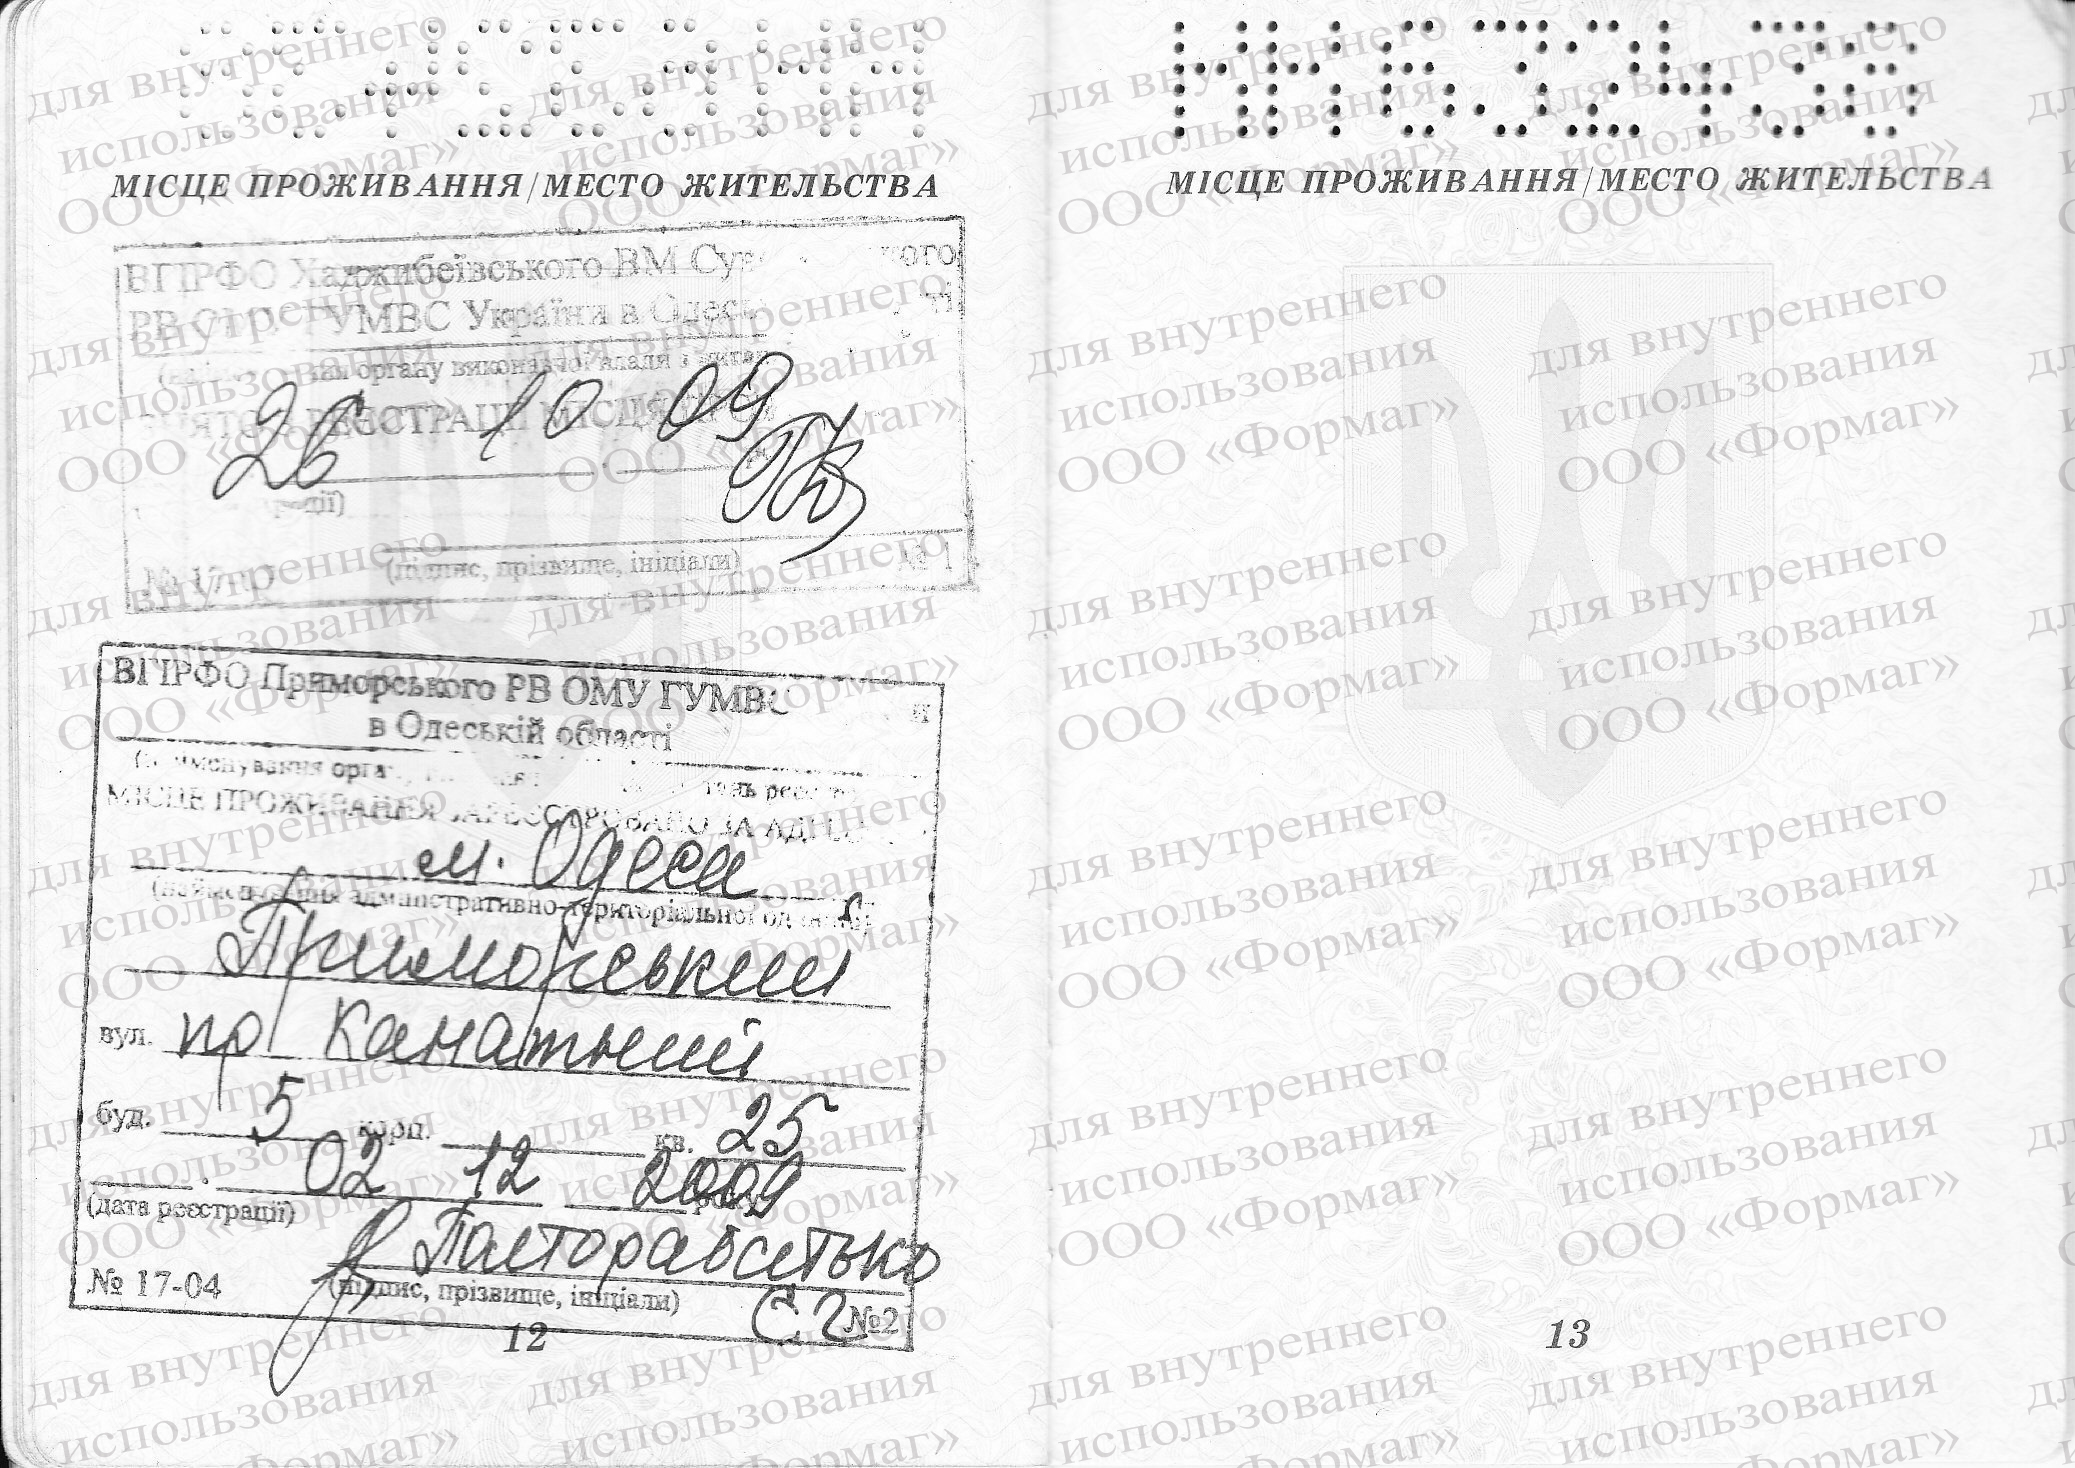 МІСЦЕ ПРОЖИВАННЯ/МЕСТО ЖИТЕЛЬСТВА
ВГІРФО Хаджибеївського ВМ
РВ ГУМВС України в
органу виконавчої влади
РЕЄСТРАЦІЇ МІСЦЯ
26 10 09
(підпис, прізвище, ініціали)
№ 1
ВГІРФО Приморського РВ ОМУ ГУМВС
в Одеській області
МІСЦЕ ПРОЖИВАННЯ ЗАРЕЄСТРОВАНО ЗА
м. Одеса
(найменування адміністративно-територіальної одиниці)
Приморський
вул. пр Канатний
буд. 5 корп. кв. 25
02 12 2009 року
(дата реєстрації)
№ 17-04 (підпис, прізвище, ініціали) С.Г №2
12
МК632438
МІСЦЕ ПРОЖИВАННЯ/МЕСТО ЖИТЕЛЬСТВА
13
для внутреннего
использования
ООО «Формаг»